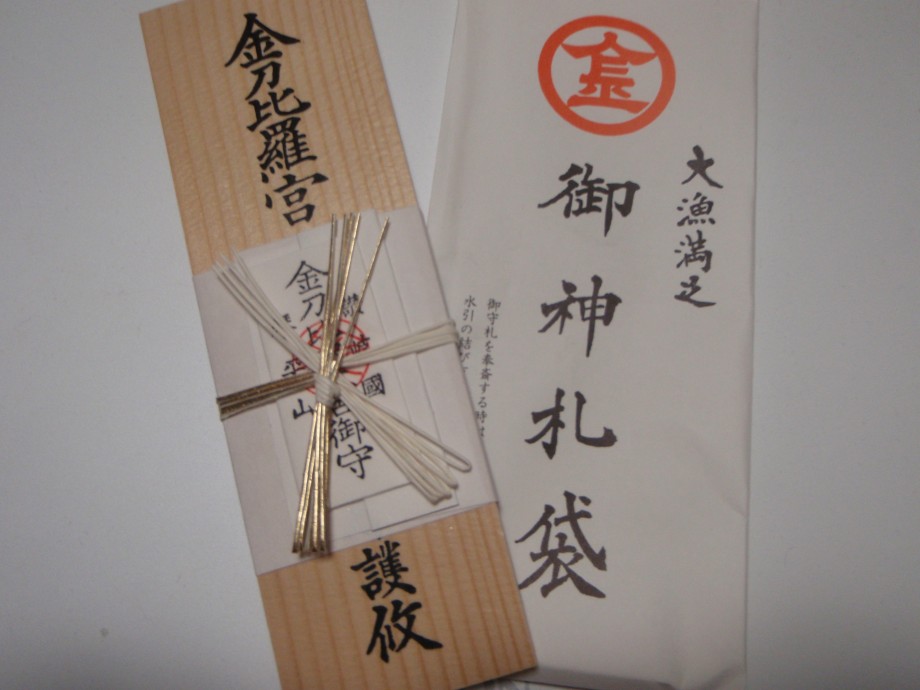 金刀比羅宮
護攸
國
御守
山
金
大漁満足
御神札袋
御守札を奉斎する時は
水引の結び